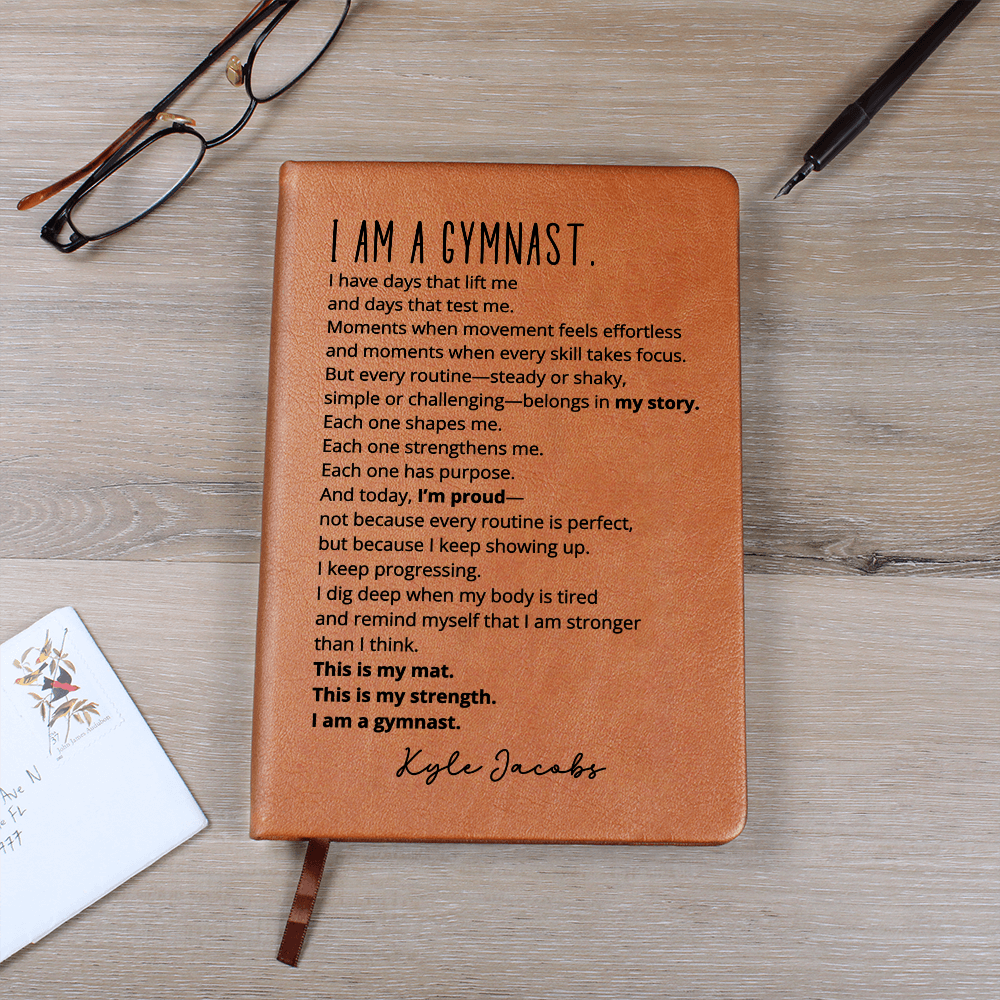 I AM A GYMNAST.
I have days that lift me
and days that test me.
Moments when movement feels effortless
and moments when every skill takes focus.
But every routine—steady or shaky,
simple or challenging—belongs in my story.
Each one shapes me.
Each one strengthens me.
Each one has purpose.
And today, I'm proud—
not because every routine is perfect,
but because I keep showing up.
I keep progressing.
I dig deep when my body is tired
and remind myself that I am stronger
than I think.
This is my mat.
This is my strength.
I am a gymnast.
Kyle Jacobs
John James Audubon
Ave N
FL